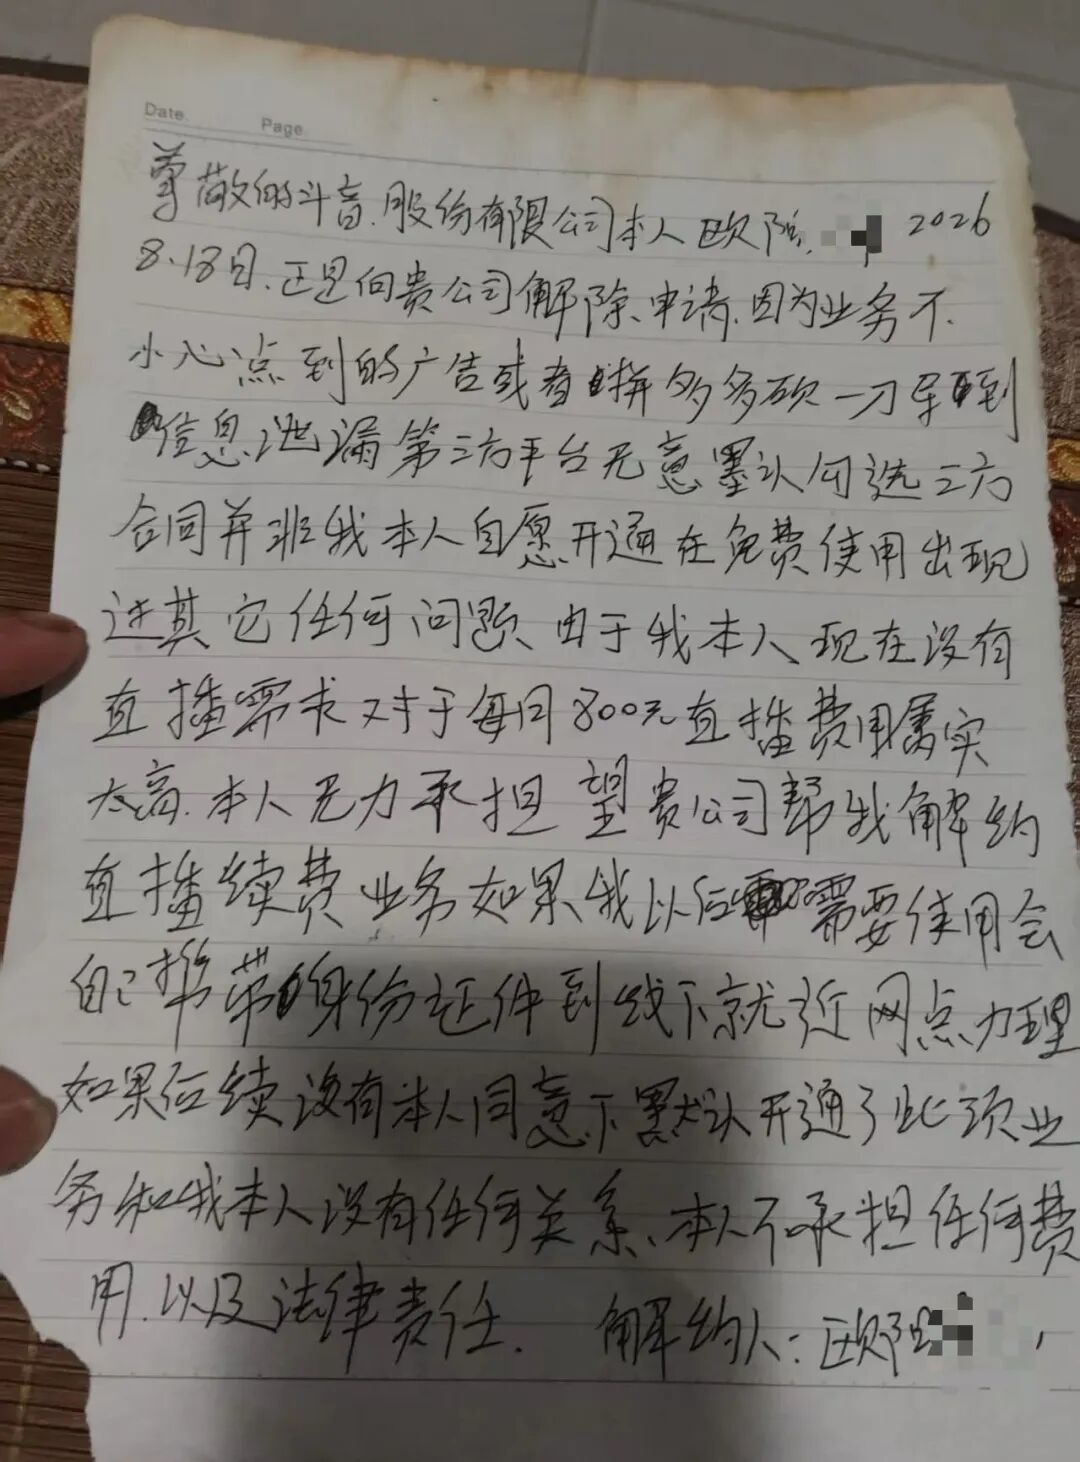 Date. Page.
尊敬的斗音.股份有限公司本人欧阳 2026
8.18日.正是向贵公司解除.申请.因为业务不.
小心点到的广告或者拼多多砍一刀导到
信息泄漏第三方平台无意墨认勾选三方
合同并非我本人自愿开通在免费使用出现
过其它任何问题 由于我本人现在没有
直播需求 对于每日800元直播费用属实
太高.本人无力承担 望贵公司帮我解约
直播续费业务如果我以后需要使用会
自己携带身份证件到线下就近网点力理
如果后续没有本人同意下默认开通了此项业
务和我本人没有任何关系、本人不承担任何费
用.以及法律责任. 解约人:欧阳